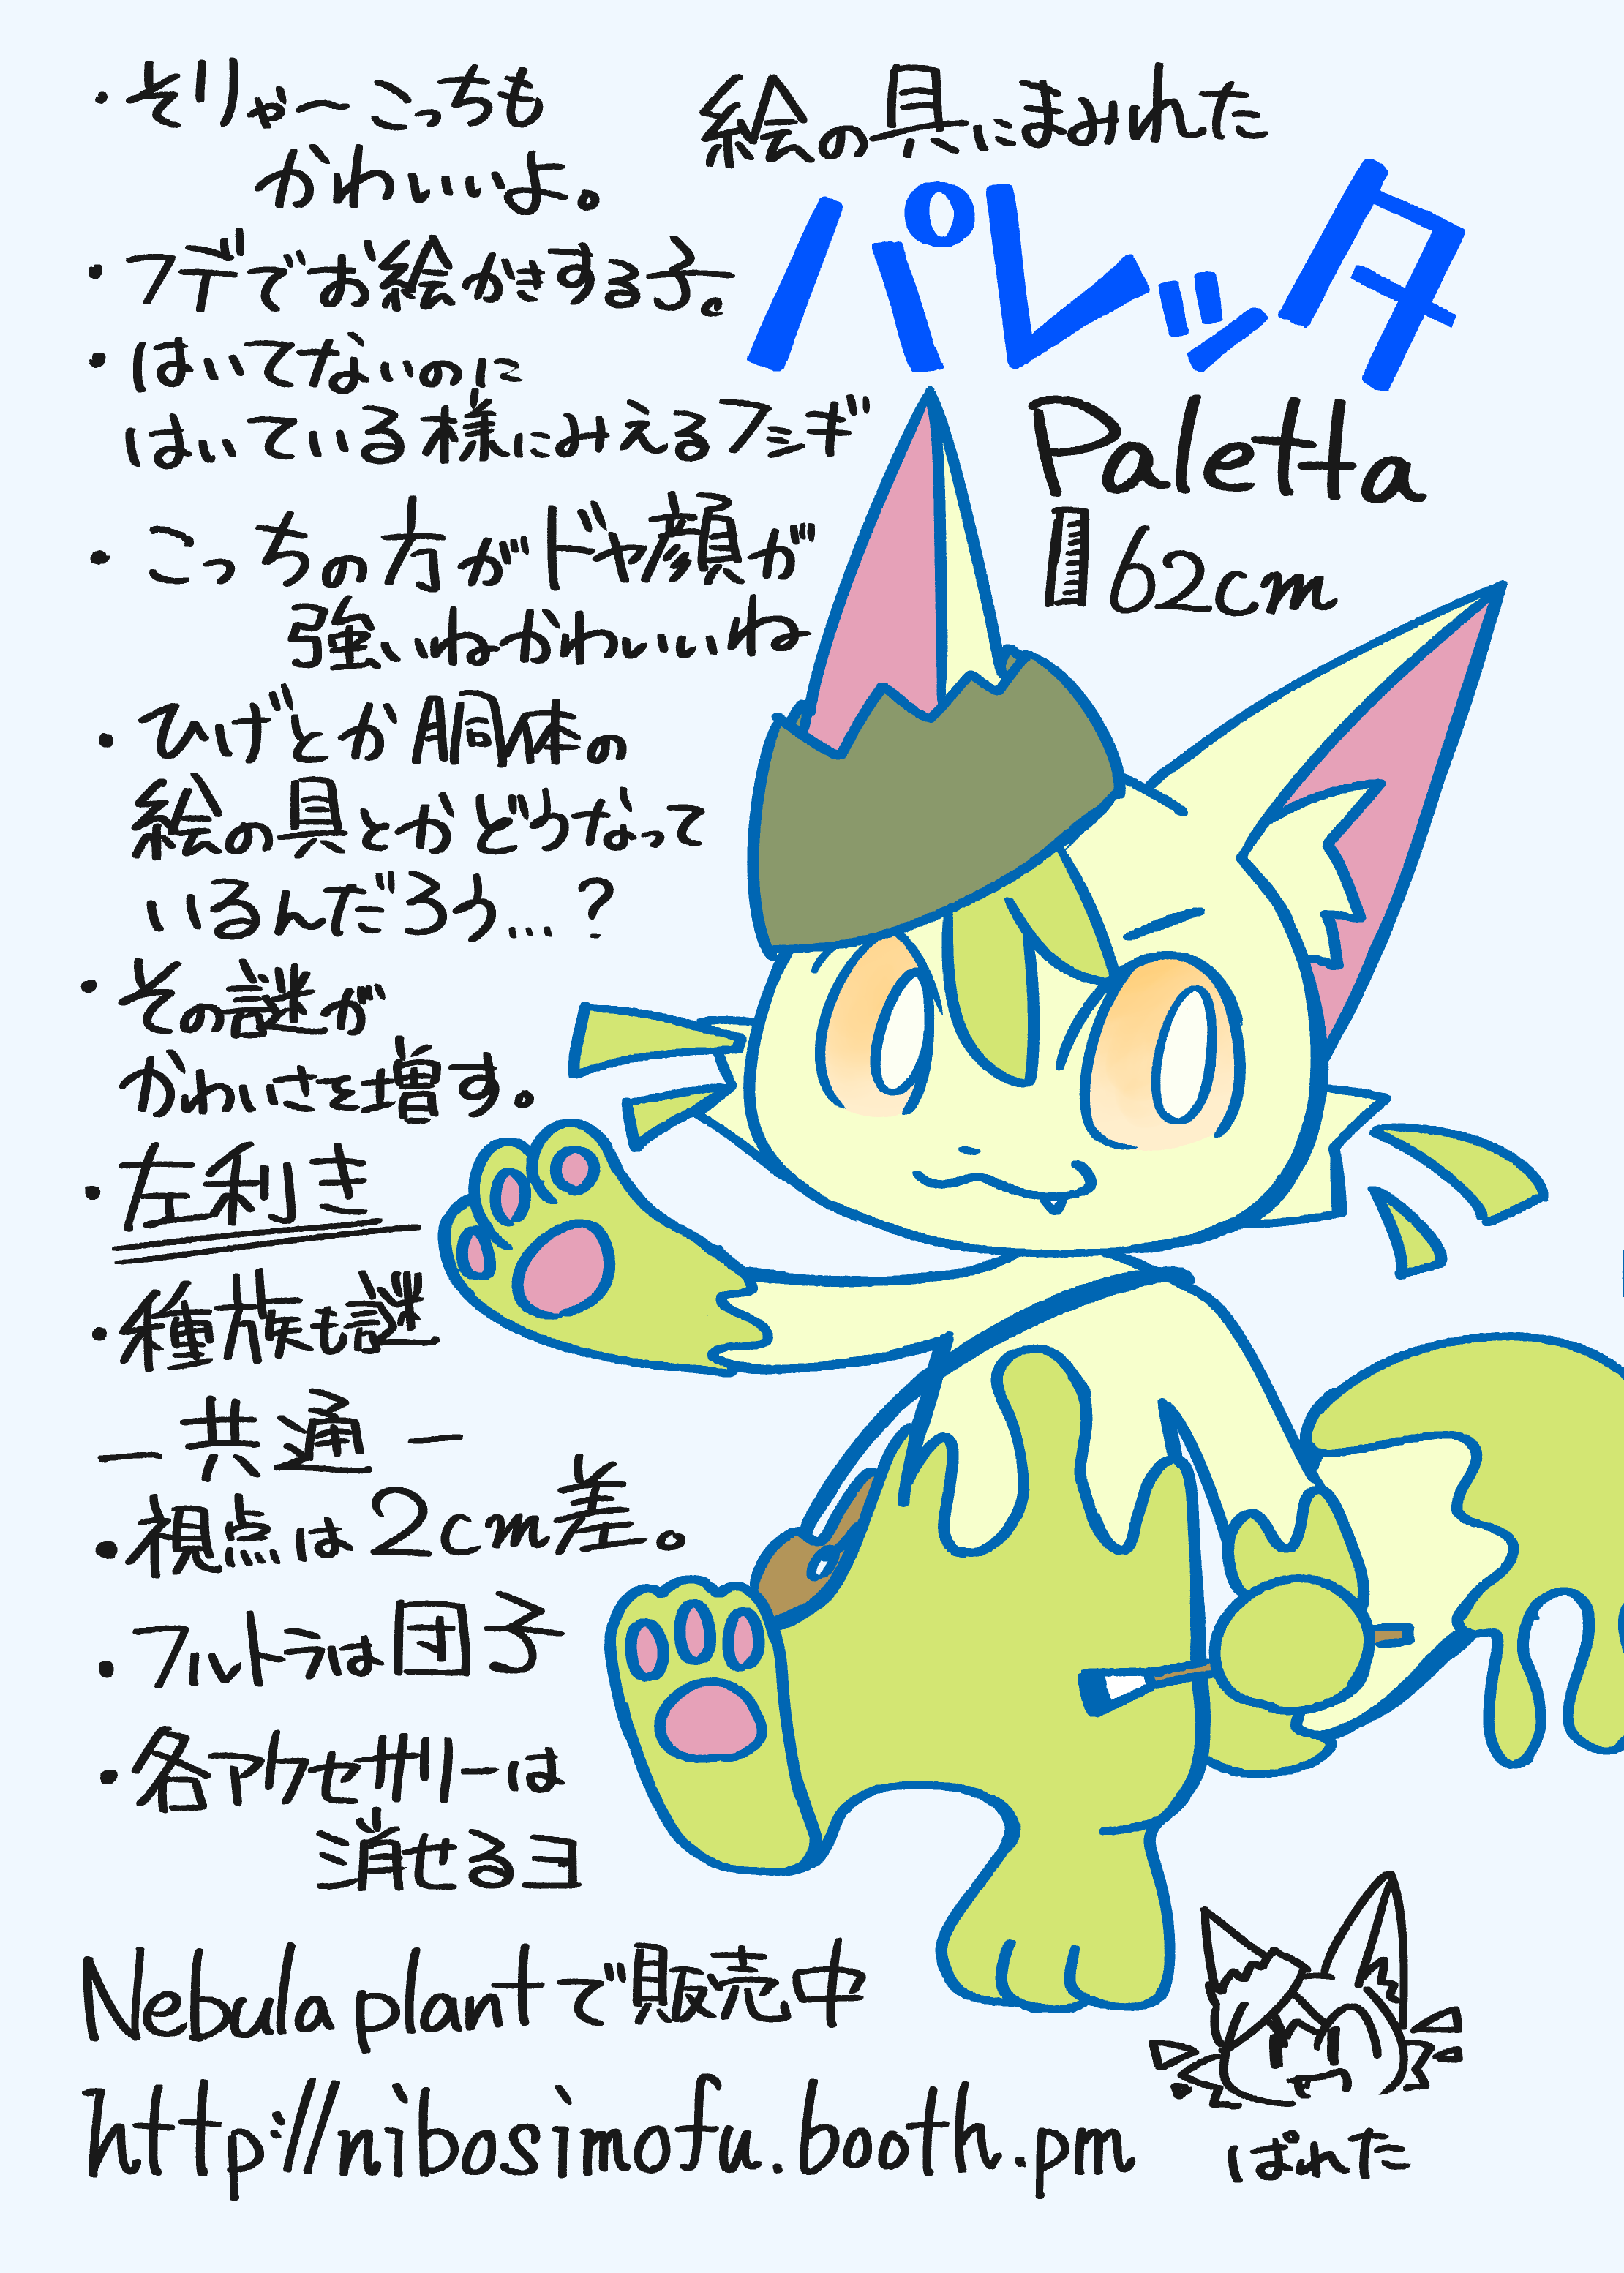 絵の具にまみれた
パレッタ
Paletta
62cm
・そりゃ〜こっちも
かわいいよ。
・フデでお絵かきする子。
・はいてないのに
はいている様にみえるフシギ
・こっちの方がドヤ顔が
強いねかわいいね
・ひげとか胴体の
絵の具とかどうなって
いるんだろう…?
・その謎が
かわいさを増す。
・左利き
・種族も謎
ー共通ー
・視点は2cm差。
・フルトラは団子
・各アクセサリーは
消せるヨ
Nebula plantで販売中
http://nibosimofu.booth.pm
ぱれた